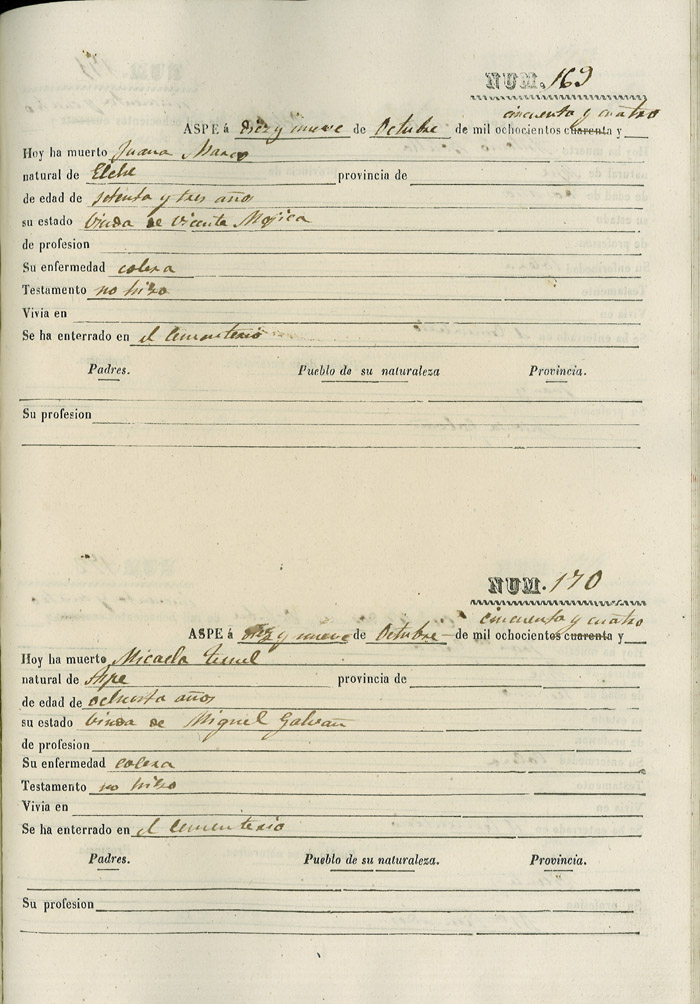 NUM. 169
cincuenta y cuatro
ASPE á diez y nueve de Octubre de mil ochocientos cuarenta y
Hoy ha muerto Juana Marco
natural de Elche provincia de
de edad de setenta y tres años
su estado Viuda de Vicente Mojica
de profesion
Su enfermedad colera
Testamento no hizo
Vivia en
Se ha enterrado en el Cementerio
Padres. Pueblo de su naturaleza Provincia.
Su profesion
NUM. 170
cincuenta y cuatro
ASPE á diez y nueve de Octubre de mil ochocientos cuarenta y
Hoy ha muerto Micaela
natural de Aspe provincia de
de edad de ochenta años
su estado Viuda de Miguel Galvañ
de profesion
Su enfermedad colera
Testamento no hizo
Vivia en
Se ha enterrado en el Cementerio
Padres. Pueblo de su naturaleza. Provincia.
Su profesion